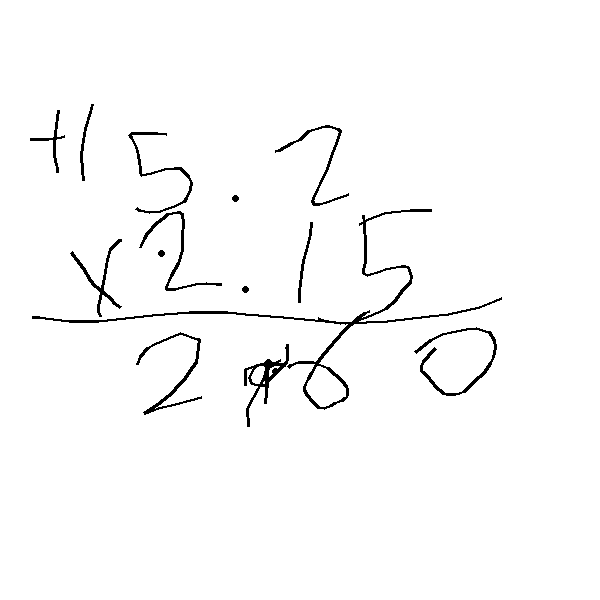 +1 5.2
x 2.15
2 60